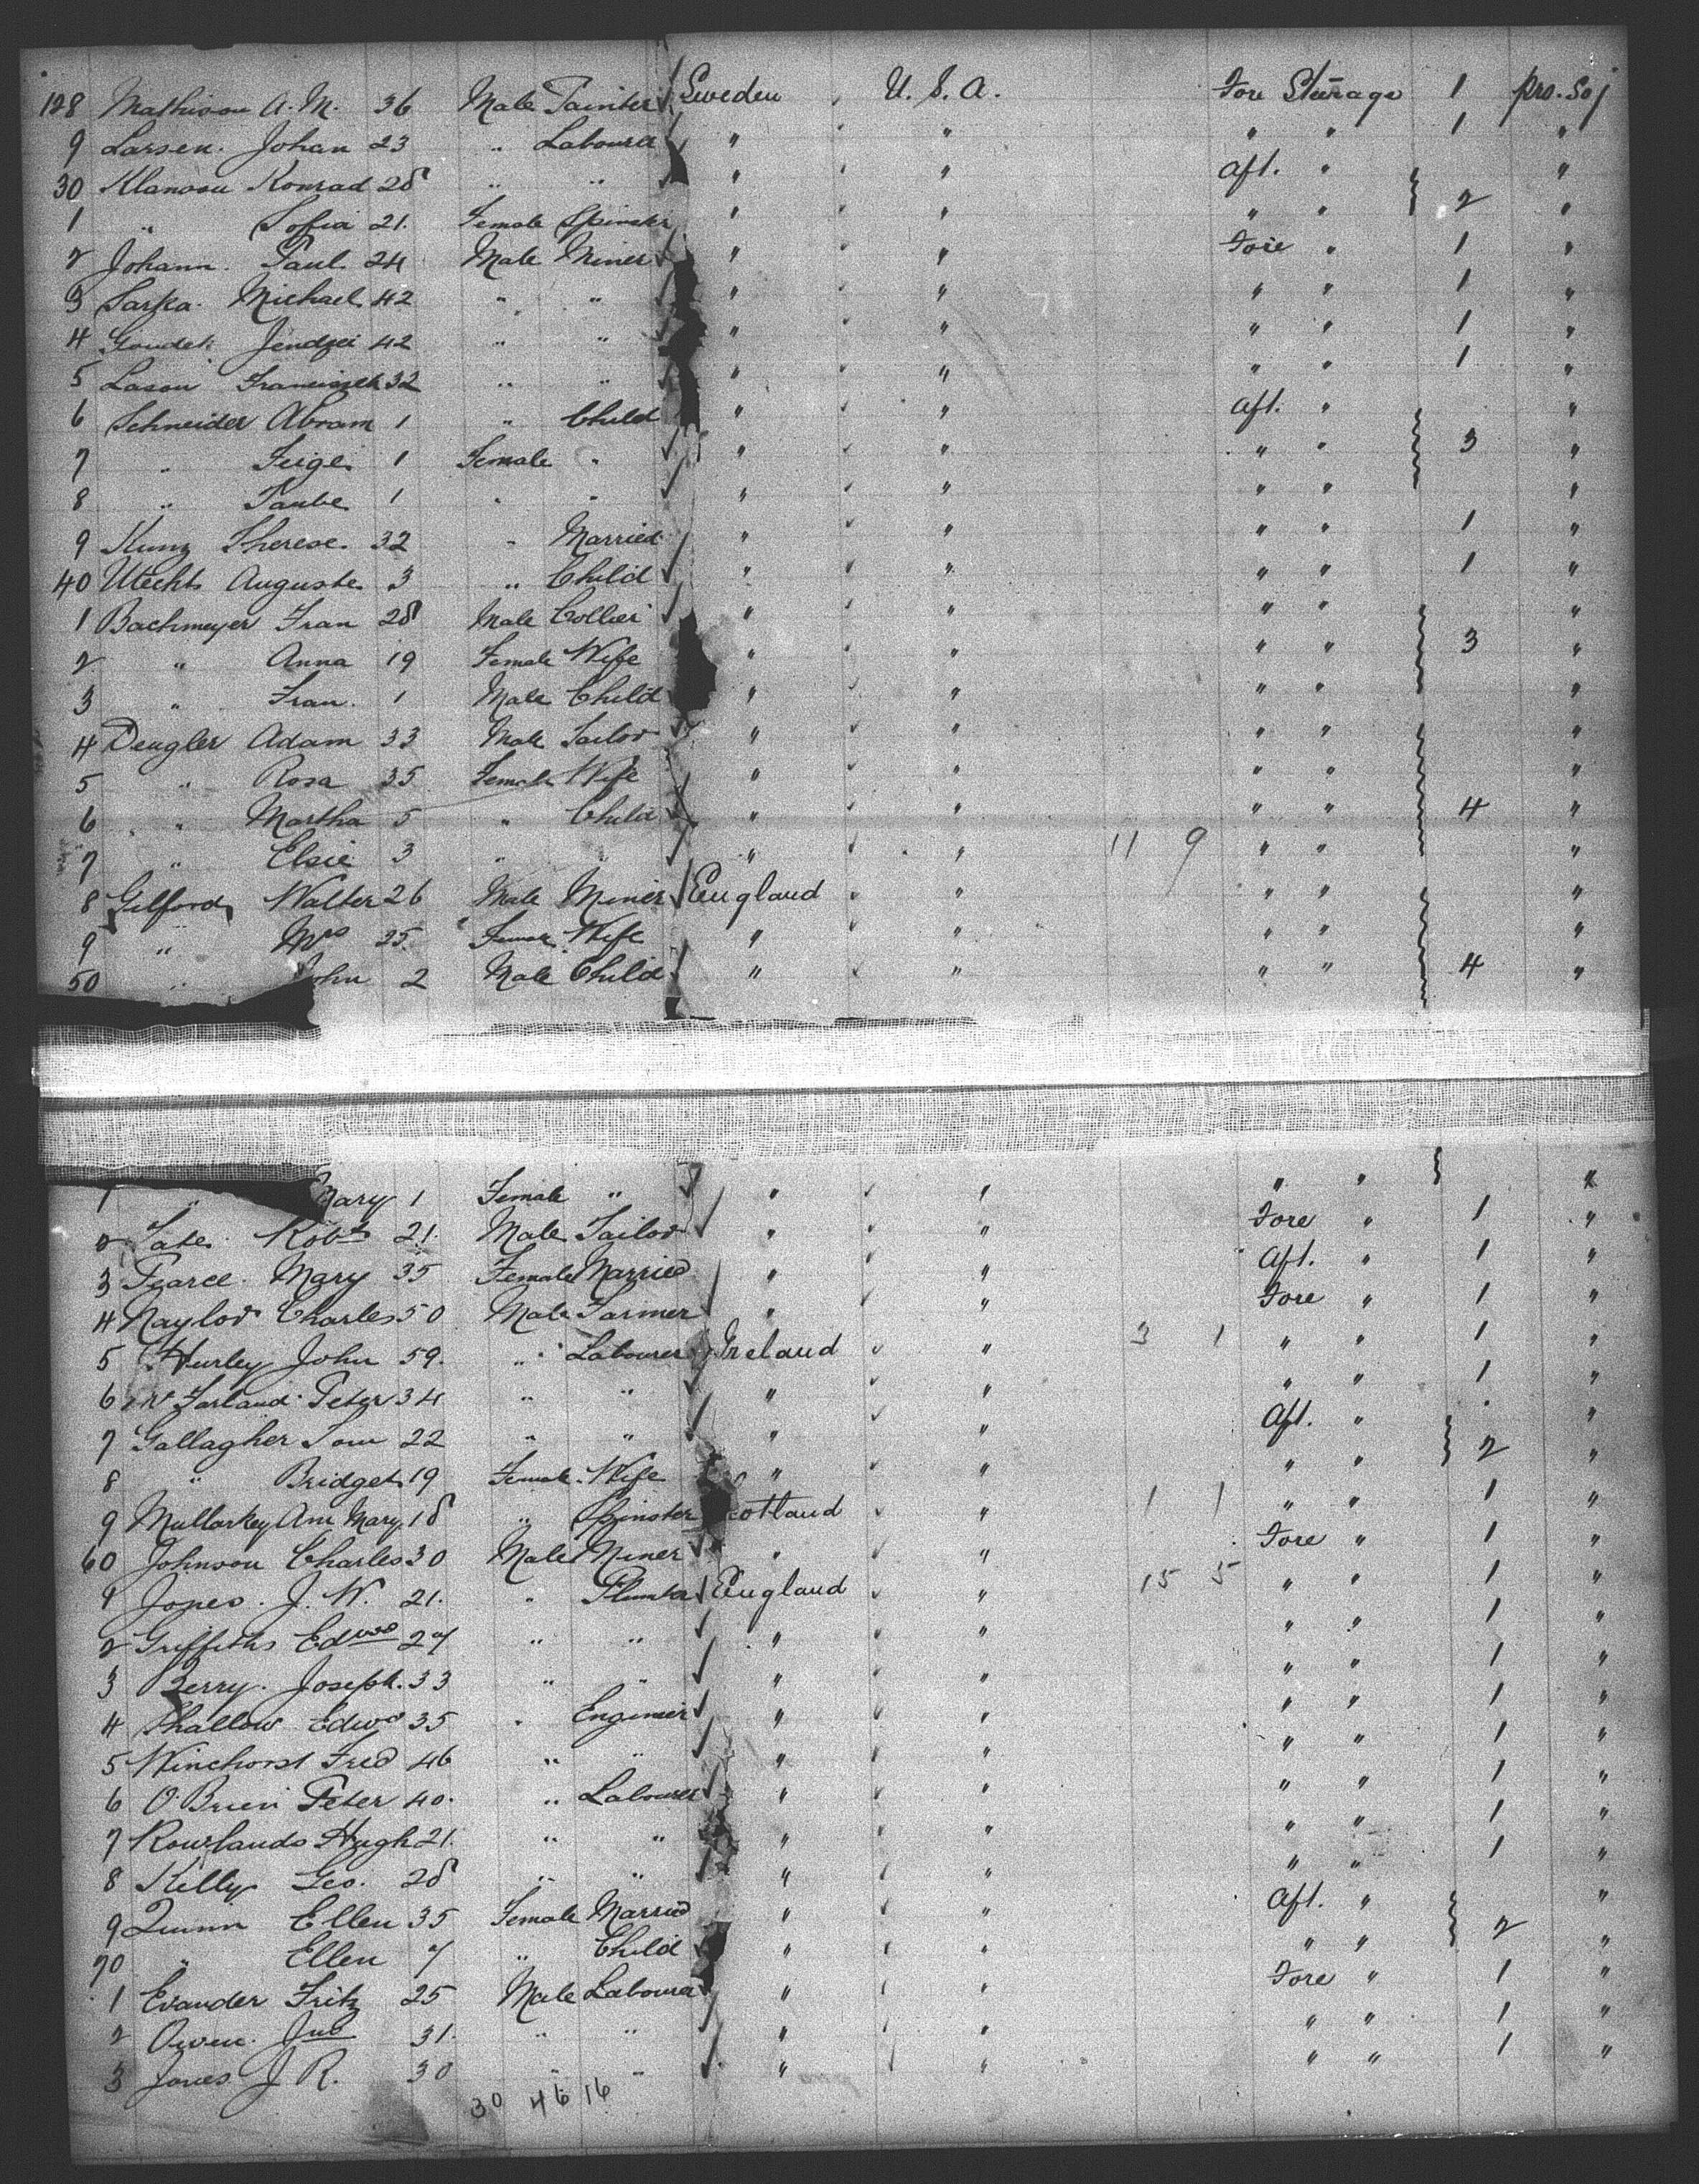 128 Mathison A. M. 36 Male Painter Sweden U. S. A. Fore Steerage 1 pro. Soj
9 Larsen. Johan 23 " Labourer " " " " 1 "
30 Konrad 28 " " " " Aft. " "
1 " Sofia 21. Female Spinster " " " " 2 "
2 Johann. Paul 24 Male Miner " " Fore " 1 "
3 Michael 42 " " " " " " 1 "
4 42 " " " " " " 1 "
5 Lason 32 " " " " " " 1 "
6 Schneider Abram 1 " Child " " Aft. " "
7 " Feige 1 Female " " " " " 3 "
8 " Taube 1 " " " " " " "
9 Kunz Therese. 32 " Married " " " " 1 "
40 Utecht Auguste 3 " Child " " " " 1 "
1 Bachmeyer Fran 28 Male Collier " " " " "
2 " Anna 19 Female Wife " " " " 3 "
3 " Fran. 1 Male Child " " " " "
4 Dengler Adam 33 Male Tailor " " " " "
5 " Rosa 35 Female Wife " " " " "
6 " Martha 5 " Child " " " " 4 "
7 " Elsie 3 " " " " 11 9 " " "
8 Gilford Walter 26 Male Miner England " " " "
9 " Mrs 25. Female Wife " " " " "
50 " John 2 Male Child " " " " 4 "
1 " Mary 1 Female " " " " " "
2 Tate Robt 21. Male Tailor " " Fore " 1 "
3 Pearce. Mary 35 Female Married " " Aft. " 1 "
4 Naylor Charles 50 Male Farmer " " Fore " 1 "
5 Hurley John 59. " Labourer Ireland " 3 1 " " 1 "
6 Farland Peter 34 " " " " " " 1 "
7 Gallagher Tom 22 " " " " Aft. " "
8 " Bridget 19 Female Wife " " " " 2 "
9 Mullarkey Ann Mary 18 " Spinster Scotland " 1 1 " " 1 "
60 Johnson Charles 30 Male Miner " " Fore " 1 "
1 Jones. J. W. 21. " Plumber England " 15 5 " " 1 "
2 Griffiths Edwd 27 " " " " " " 1 "
3 Berry. Joseph. 33 " " " " " " 1 "
4 Edwd 35 " Engineer " " " " 1 "
5 Winchorst Fred 46 " " " " " " 1 "
6 O'Brien Peter 40. " Labourer " " " " 1 "
7 Rowlands Hugh 21. " " " " " " 1 "
8 Kelly Geo. 28 " " " " " " 1 "
9 Quinn Ellen 35 Female Married " " Aft. " "
70 " Ellen 7 " Child " " " " 2 "
1 Evander Fritz 25 Male Labourer " " Fore " 1 "
2 Owen. Jno 31. " " " " " " 1 "
3 Jones J R. 30 " " " " " " 1 "
30 46 16